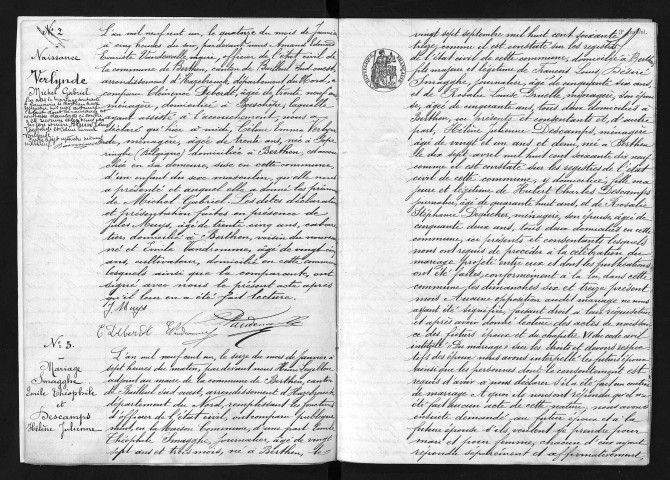 N° 2
Naissance
Verlynde
Michel Gabriel
L'an mil neuf cent un, le quatorze du mois de Janvier
à cinq heures du soir, pardevant nous Amand Edouard
maire, officier de l'état civil de
la commune de Berthen, canton de Bailleul Sud-ouest
arrondissement d'Hazebrouck, département du Nord, a
comparu Clémence Deberdt, âgée de trente neuf ans
ménagère, domiciliée à Boeschèpe, laquelle
ayant assisté à l'accouchement, nous a
déclaré qu'hier à midi, Céline Emma Verlyn-
de, ménagère, âgée de trente ans, née à Pope-
ringhe (Belgique) domiciliée à Berthen, est accou-
chée en sa demeure, sise en cette commune,
d'un enfant du sexe masculin, qu'elle nous
a présenté et auquel elle a donné les prénoms
de Michel Gabriel. Les dites déclaration
et présentation faites en présence de
Jules Meuys, âgé de trente cinq ans, caba-
tier, domicilié à Berthen, voisin du nouveau
né et Emile Vandromme, âgé de vingt
ans, cultivateur, domicilié en cette commune
lesquels ainsi que la comparante, ont
signé avec nous le présent acte après
qu'il leur en a été fait lecture.
J Meuys
C Deberdt E Vandromme
N° 3.
Mariage
Smagghe
Emile Théophile
et
Descamps
Hélène Julienne
L'an mil neuf cent un, le seize du mois de Janvier à
sept heures du matin, pardevant nous Henri
adjoint au maire de la commune de Berthen, canton
de Bailleul sud ouest, arrondissement d'Hazebrouck
département du Nord, remplissant les fonctions
d'officier de l'état civil, ont comparu publique
ment, en la Maison Commune, d'une part Emile
Théophile Smagghe, journalier, âgé de vingt
sept ans et trois mois, né à Berthen, le
vingt sept septembre mil huit cent soixante
treize, comme il est constaté sur les registres
de l'état civil de cette commune, domicilié à Berthen
fils majeur et légitime de François Louis Désiré
Smagghe, journalier, âgé de cinquante six ans
et de Rosalie Louise Druelle, ménagère, son épou
se, âgée de cinquante ans, tous deux domiciliés à
Berthen, ici présents et consentants et, d'autre
part, Hélène Julienne Descamps, ménagère
âgée de vingt et un ans et demi, née à Berthen
le dix sept avril mil huit cent soixante dix neuf
comme il est constaté sur les registres de l'état
civil de cette commune, y domiciliée, fille ma
jeure et légitime de Hubert Charles Descamps
journalier, âgé de quarante huit ans, et de Rosalie
Stéphanie Depicker, ménagère, son épouse, âgée de
cinquante deux ans, tous deux domiciliés en cette
commune, ici présents et consentants lesquels
nous ont requis de procéder à la célébration du
mariage projeté entre eux et dont les publications
ont été faites, conformément à la loi, dans cette
commune les dimanches six et treize présent
mois. Aucune opposition audit mariage ne nous
ayant été signifiée, faisant droit à leur réquisition
et après avoir donné lecture des actes de naissan
ce des futurs époux et du chapitre VI du code civil
intitulé "Du mariage" sur les droits et devoirs respec
tifs des époux nous avons interpellé les futurs époux
ainsi que les personnes dont le consentement est
requis d'avoir à nous déclarer s'il a été fait un contrat
de mariage. A quoi ils nous ont répondu qu'il n'a
été fait aucun acte de cette nature, nous avons
ensuite demandé au futur époux et à la
future épouse s'ils veulent se prendre pour
mari et pour femme, chacun d'eux ayant
répondu séparément et affirmativement,